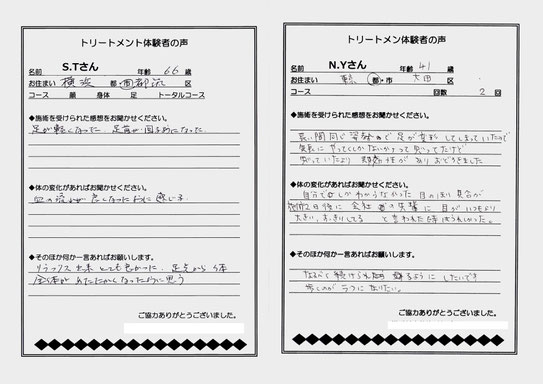 トリートメント体験者の声
S.Tさん
名前 年齢 66 歳
お住まい 横浜 都・市 都筑 区
コース 顔 身体 足 トータルコース
◆施術を受けられた感想をお聞かせください。
足が軽くなった、足首が回るようになった
◆体の変化があればお聞かせください。
血の流れが良くなったように感じる
◆そのほか何か一言あればお願いします。
リラックス出来 とても良かった、足先から
全体が あたたかくなったように思う
ご協力ありがとうございました。
トリートメン体験者の声
N.Yさん
名前 年齢 41 歳
お住まい 東京 都・市 大田 区
コース 回数 2 回
◆施術を受けられた感想をお聞かせください。
長い間同じ姿勢 で 足が しまっていたので
思っていたより があり おどろきました
◆体の変化があればお聞かせください。
自分では しかわからなかった 目の 具合が
2日後に 会社 の先輩に 目がいつもより
大きい、 してる と言われた時はうれしかった。
◆そのほか何か一言あればお願いします。
なるべく 続けられ ようにしたいです
歩くのが うつになりたい。
ご協力ありがとうございました。